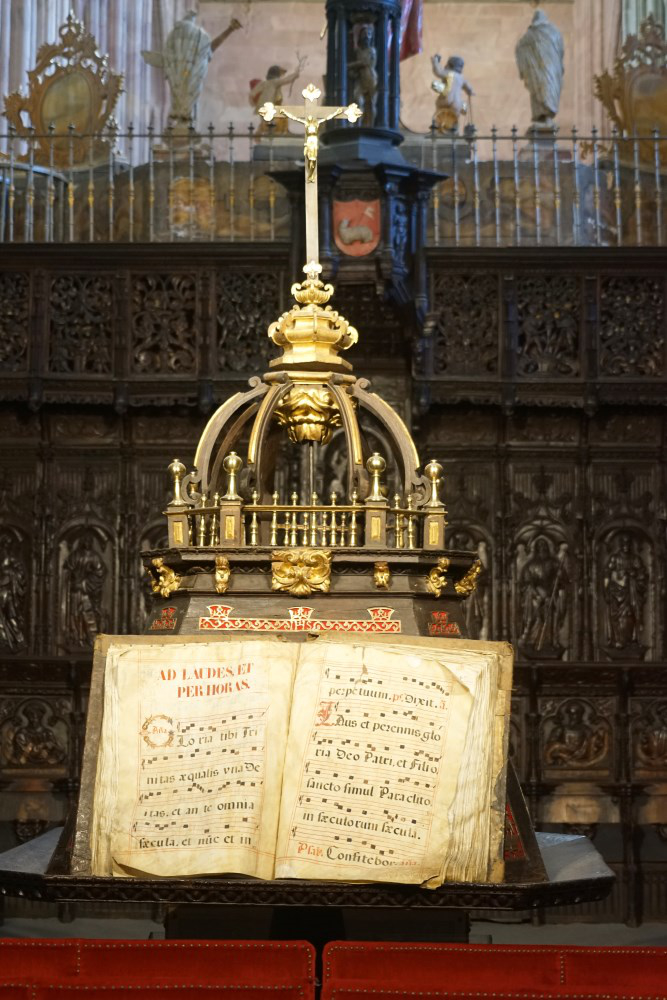 AD LAUDES, ET
PER HORAS.
Loria tibi Tri
nitas æqualis vna De
itas, et an te omnia
sæcula, et nūc et in
perpetuum. Dixit.
Laus et perennis glo
ria Deo Patri, et Filio,
sancto simul Paraclito,
in sæculorum sæcula.
Psal. Confitebor